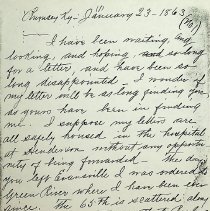 Rumsey Ky. January 23 - 1863
I have been waiting and
looking, and hoping so long
for a letter, and have been so
long disappointed. I wonder if
my letter will be as long finding you
as yours have been in finding
me. I suppose my letters are
all safely housed in the hospital
at Henderson without any opportu-
nity of being forwarded - The day
you left Evansville I was ordered to
Green River where I have been ever
since. The 65th is scattered along